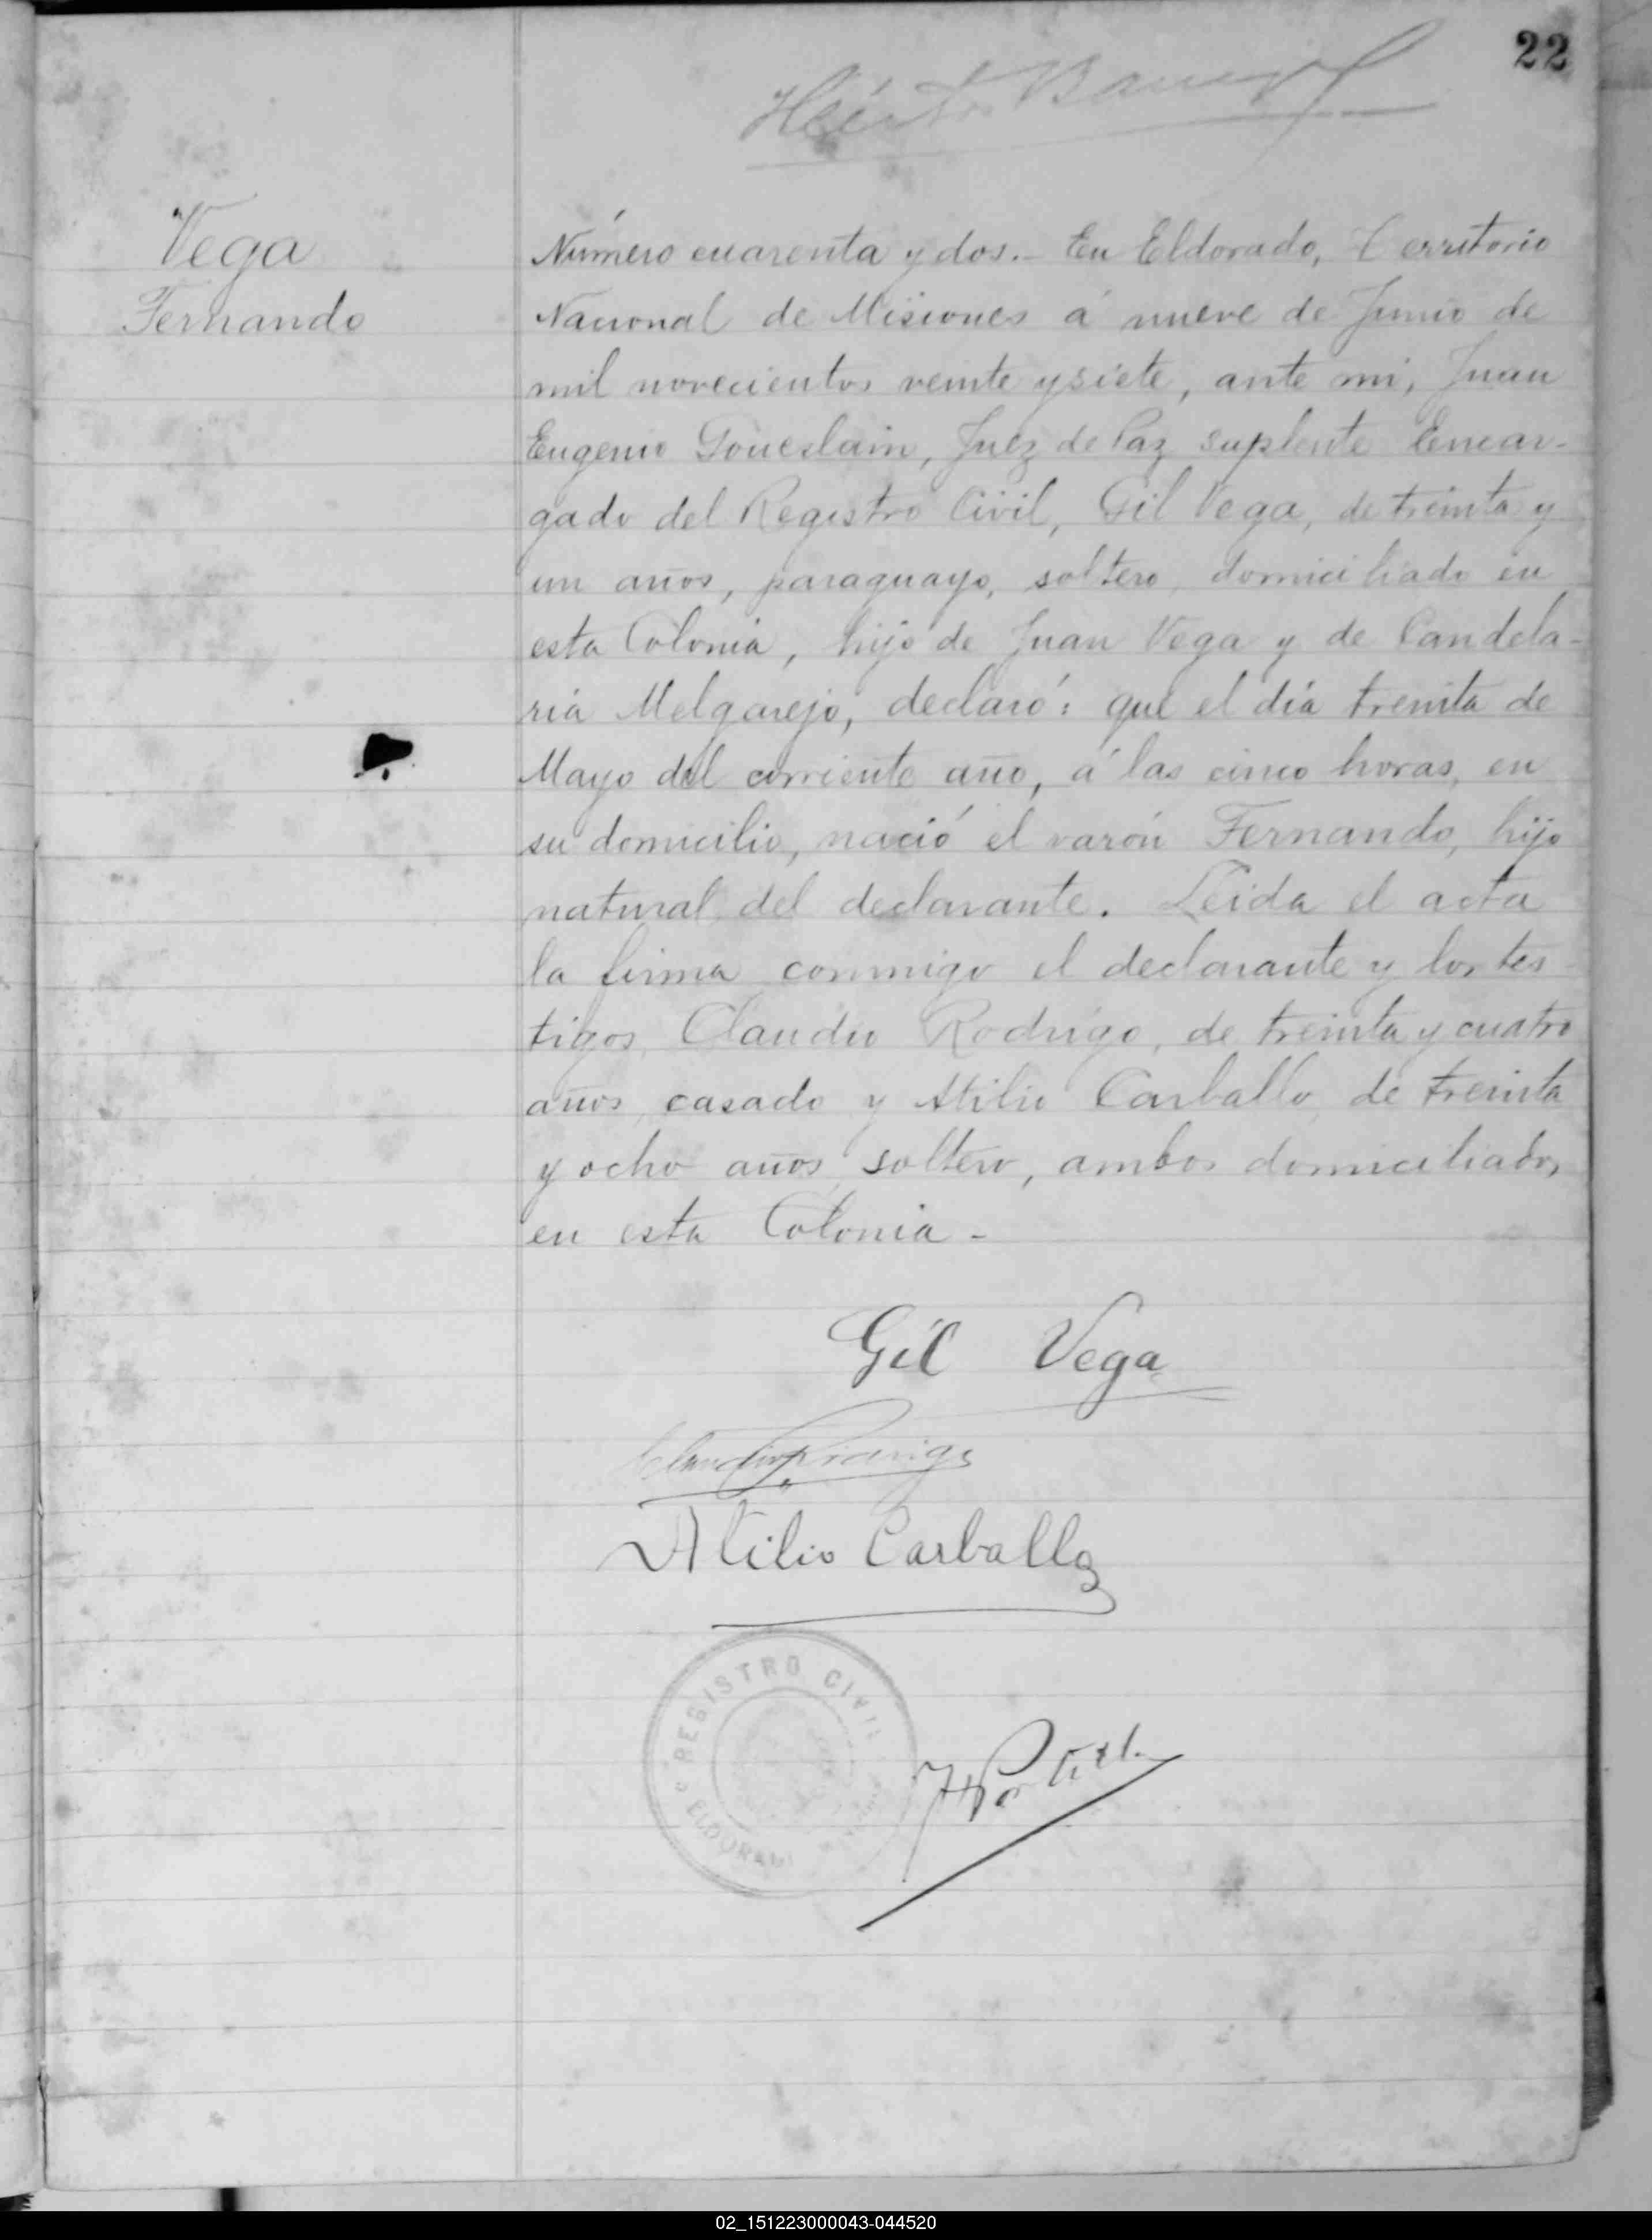 22
Vega
Fernando
Número cuarenta y dos.- En Eldorado, Territorio
Nacional de Misiones á nueve de Junio de
mil novecientos veinte y siete, ante mi, Juan
Eugenio Goueslain, Juez de Paz suplente Encar-
gado del Registro Civil, Gil Vega, de treinta y
un años, paraguayo, soltero, domiciliado en
esta Colonia, hijo de Juan Vega y de Candela-
ria Melgarejo, declaró: que el día treinta de
Mayo del corriente año, á las cinco horas, en
su domicilio, nació el varón Fernando, hijo
natural del declarante. Leida el acta
la firma conmigo el declarante y los tes
tigos, Claudio Rodrigo, de treinta y cuatro
años, casado y Atilio Carballo, de treinta
y ocho años, soltero, ambos domiciliados
en esta Colonia-
Gil Vega
Atilio Carballo
REGISTRO CIVIL
ELDORADO
02_151223000043-044520